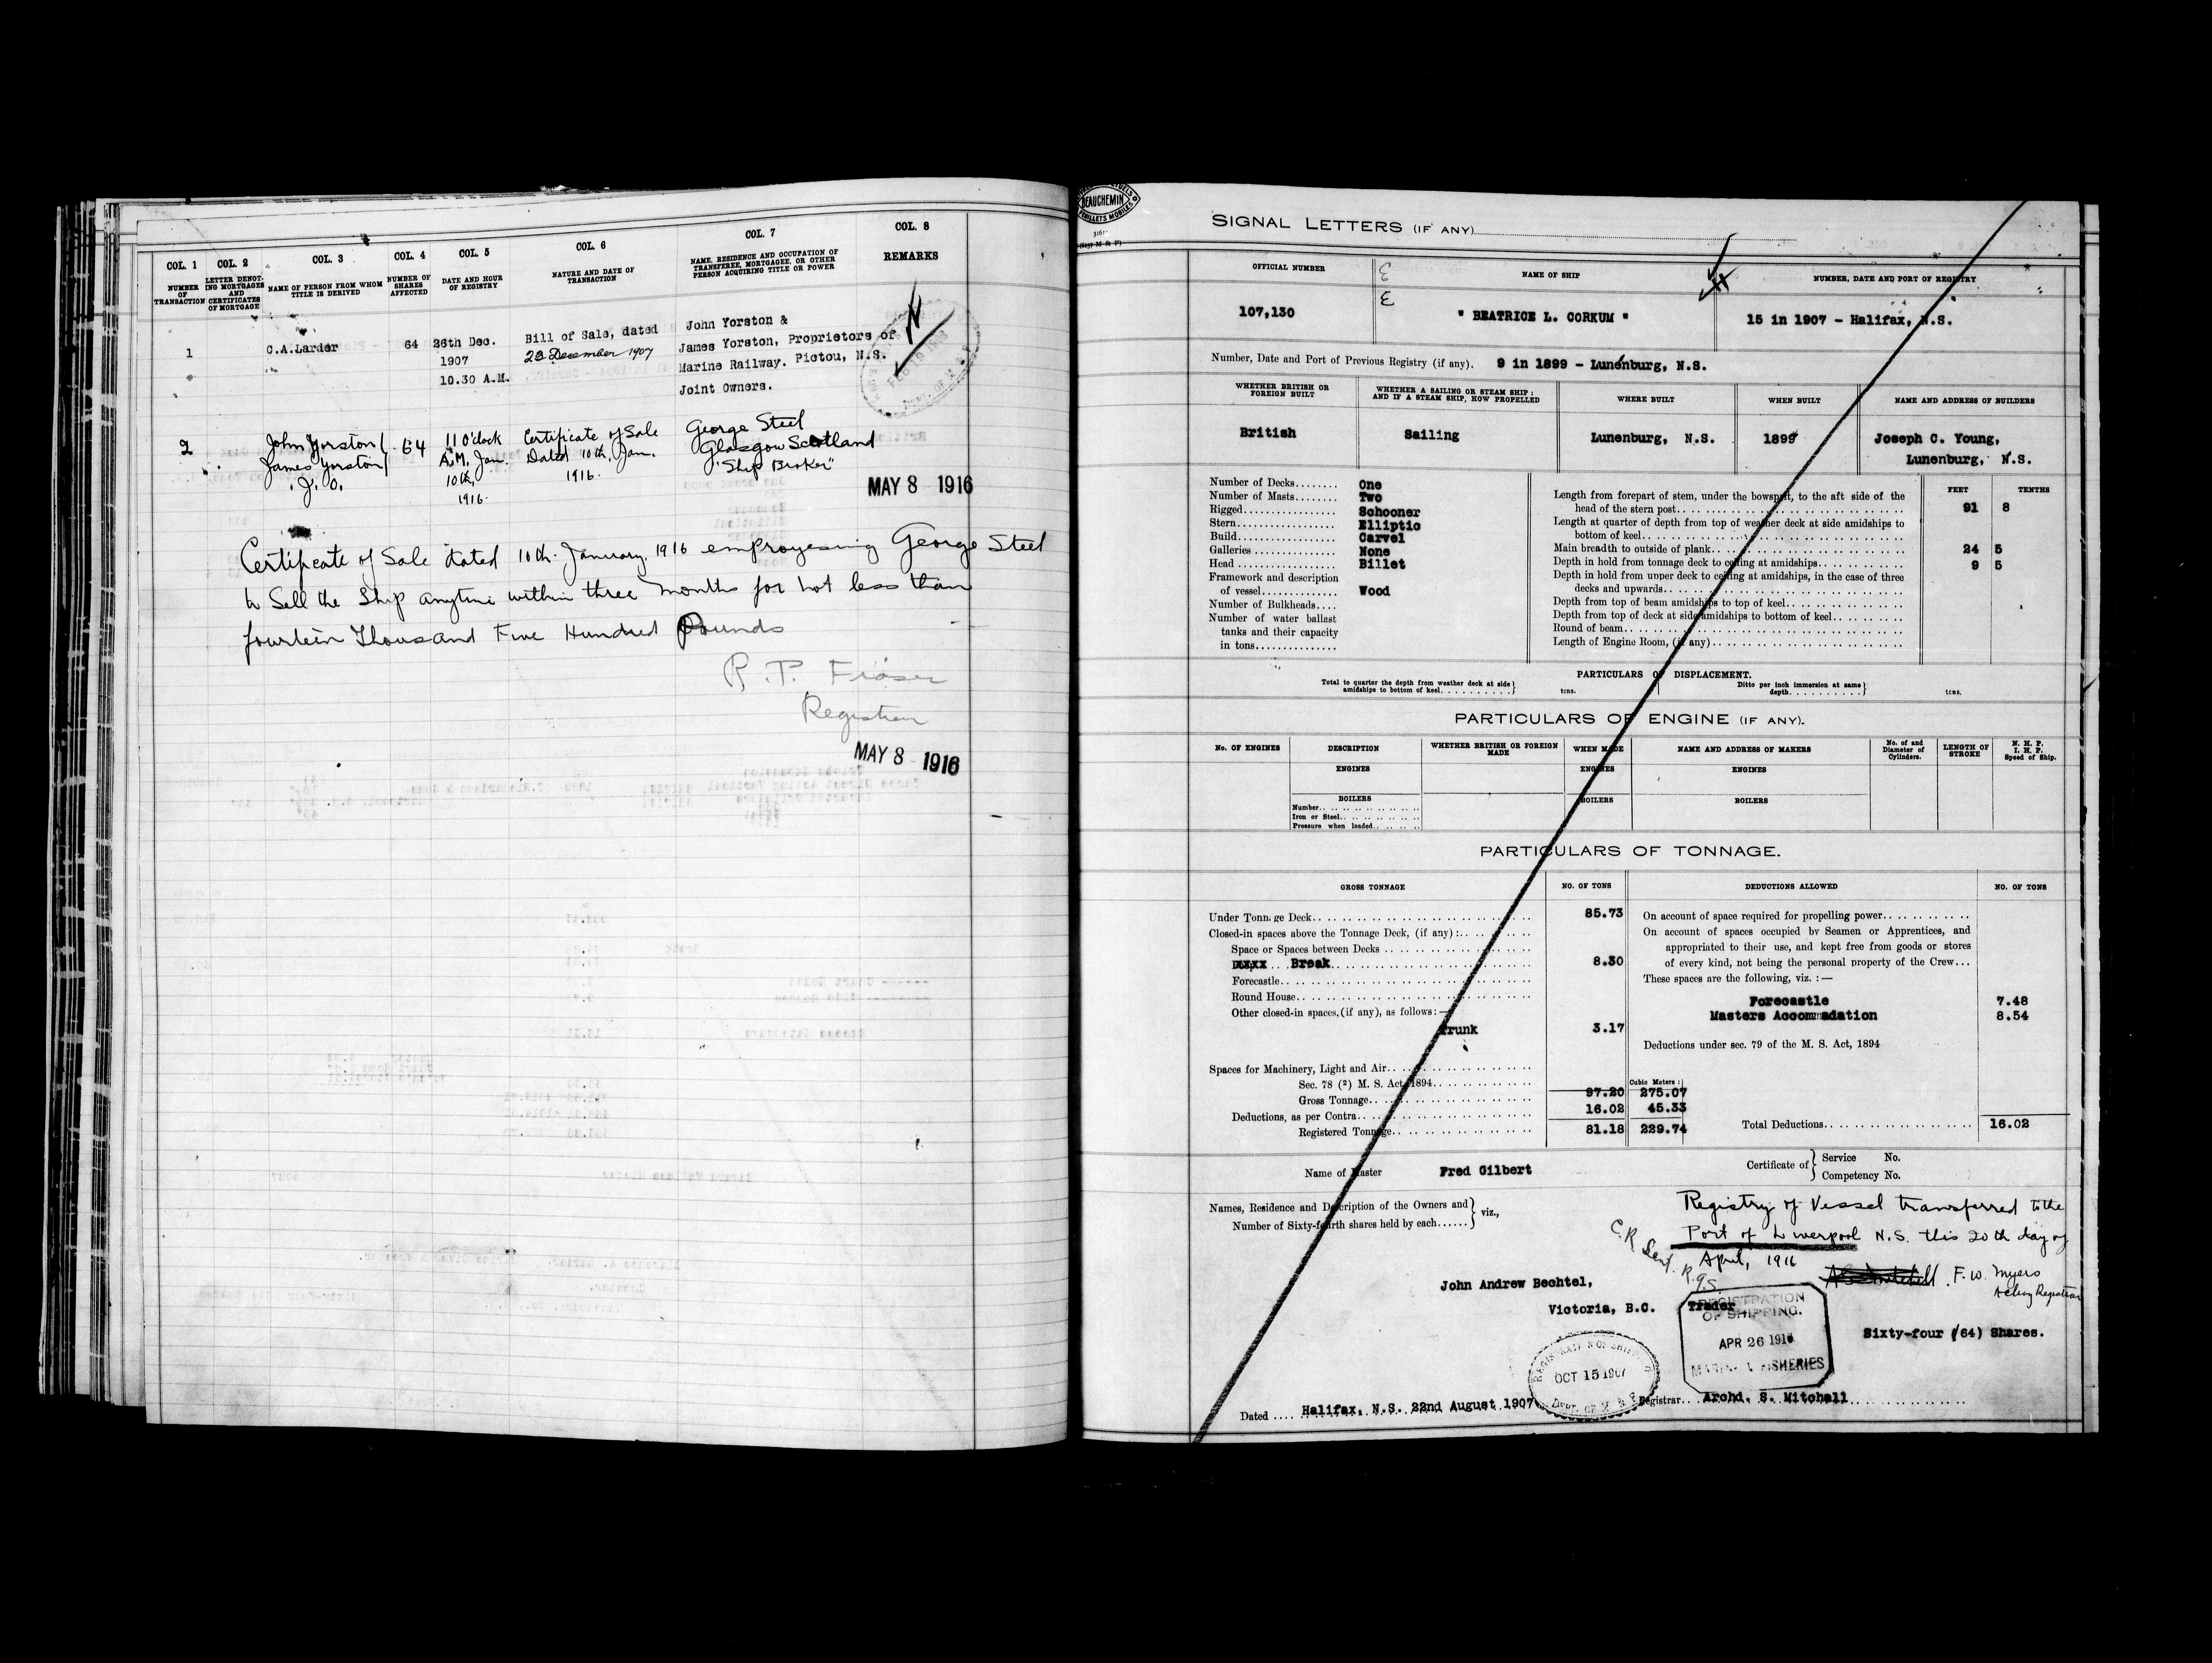 COL. 1 COL. 2 COL. 3 COL. 4 COL. 5 COL. 6 COL. 7 COL. 8
NUMBER OF TRANSACTION
LETTER DENOT-ING MORTGAGES AND CERTIFICATES OF MORTGAGE
NAME OF PERSON FROM WHOM TITLE IS DERIVED
NUMBER OF SHARES AFFECTED
DATE AND HOUR OF REGISTRY
NATURE AND DATE OF TRANSACTION
NAME, RESIDENCE AND OCCUPATION OF TRANSFEREE, MORTGAGEE, OR OTHER PERSON ACQUIRING TITLE OR POWER
REMARKS
1 C.A.Larder 64
26th Dec.
1907
10.30 A.M.
Bill of Sale, dated
23 December 1907
John Yorston &
James Yorston, Proprietors of
Marine Railway. Pictou, N.S.
Joint Owners.
2
John Yorston
James Yorston
J. O.
64
11 O'clock
A.M. Jan.
10th,
1916.
Certificate of Sale
Dated 10th. Jan.
1916.
George Steel
Glasgow Scotland
"Ship Broker"
MAY 8 1916
Certificate of Sale dated 10th. January, 1916 empowering George Steel
to Sell the Ship anytime within three months for not less than
fourteen Thousand Five Hundred Pounds
R. P. Fraser
Registrar
MAY 8 1916
BEAUCHEMIN
FEUILLETS MOBILES
SIGNAL LETTERS (IF ANY)
OFFICIAL NUMBER
NAME OF SHIP
NUMBER, DATE AND PORT OF REGISTRY
107,130
" BEATRICE L. CORKUM "
15 in 1907 - Halifax, N.S.
Number, Date and Port of Previous Registry (if any). 9 in 1899 - Lunenburg, N.S.
WHETHER BRITISH OR FOREIGN BUILT
WHETHER A SAILING OR STEAM SHIP; AND IF A STEAM SHIP, HOW PROPELLED
WHERE BUILT
WHEN BUILT
NAME AND ADDRESS OF BUILDERS
British
Sailing
Lunenburg, N.S.
1899
Joseph C. Young,
Lunenburg, N.S.
Number of Decks........ One
Number of Masts........ Two
Rigged................. Schooner
Stern.................. Elliptic
Build.................. Carvel
Galleries.............. None
Head................... Billet
Framework and description
of vessel.............. Wood
Number of Bulkheads....
Number of water ballast
tanks and their capacity
in tons...............
FEET TENTHS
Length from forepart of stem, under the bowsprit, to the aft side of the
head of the stern post.......... 91 8
Length at quarter of depth from top of weather deck at side amidships to
bottom of keel..........
Main breadth to outside of plank.......... 24 5
Depth in hold from tonnage deck to ceiling at amidships.......... 9 5
Depth in hold from upper deck to ceiling at amidships, in the case of three
decks and upwards..........
Depth from top of beam amidships to top of keel..........
Depth from top of deck at side amidships to bottom of keel..........
Round of beam..........
Length of Engine Room, (if any)..........
PARTICULARS OF DISPLACEMENT.
Total to quarter the depth from weather deck at side
amidships to bottom of keel.......... tons.
Ditto per inch immersion at same
depth.......... tons.
PARTICULARS OF ENGINE (IF ANY).
No. OF ENGINES
DESCRIPTION
WHETHER BRITISH OR FOREIGN MADE
WHEN MADE
NAME AND ADDRESS OF MAKERS
No. of and Diameter of Cylinders.
LENGTH OF STROKE
N. H. P.
I. H. P.
Speed of Ship.
ENGINES ENGINES ENGINES
BOILERS BOILERS BOILERS
Number..........
Iron or Steel..........
Pressure when loaded..........
PARTICULARS OF TONNAGE.
GROSS TONNAGE
NO. OF TONS
DEDUCTIONS ALLOWED
NO. OF TONS
Under Tonnage Deck.......... 85.73
Closed-in spaces above the Tonnage Deck, (if any):..........
Space or Spaces between Decks..........
Break.......... 8.30
Forecastle..........
Round House..........
Other closed-in spaces, (if any), as follows:—
Trunk 3.17
Spaces for Machinery, Light and Air..........
Sec. 78 (2) M. S. Act, 1894..........
Cubic Meters:
Gross Tonnage.......... 97.20 275.07
Deductions, as per Contra.......... 16.02 45.33
Registered Tonnage.......... 81.18 229.74
On account of space required for propelling power..........
On account of spaces occupied by Seamen or Apprentices, and
appropriated to their use, and kept free from goods or stores
of every kind, not being the personal property of the Crew...
These spaces are the following, viz. :—
Forecastle 7.48
Masters Accommadation 8.54
Deductions under sec. 79 of the M. S. Act, 1894
Total Deductions.......... 16.02
Name of Master Fred Gilbert
Certificate of
Service No.
Competency No.
Names, Residence and Description of the Owners and
Number of Sixty-fourth shares held by each......
viz.,
Registry of Vessel transferred to the
Port of Liverpool N.S. this 20th day of
April, 1916
F. W. Myers
Acting Registrar
C.R. Sent.
John Andrew Bechtel,
Victoria, B.C. Trader
REGISTRATION
OF SHIPPING.
APR 26 1916
MARINE & FISHERIES
Sixty-four (64) Shares.
OCT 15 1907
DEPT. OF M & F
Dated .... Halifax, N.S. 22nd August 1907
Registrar.. Archd. S. Mitchell